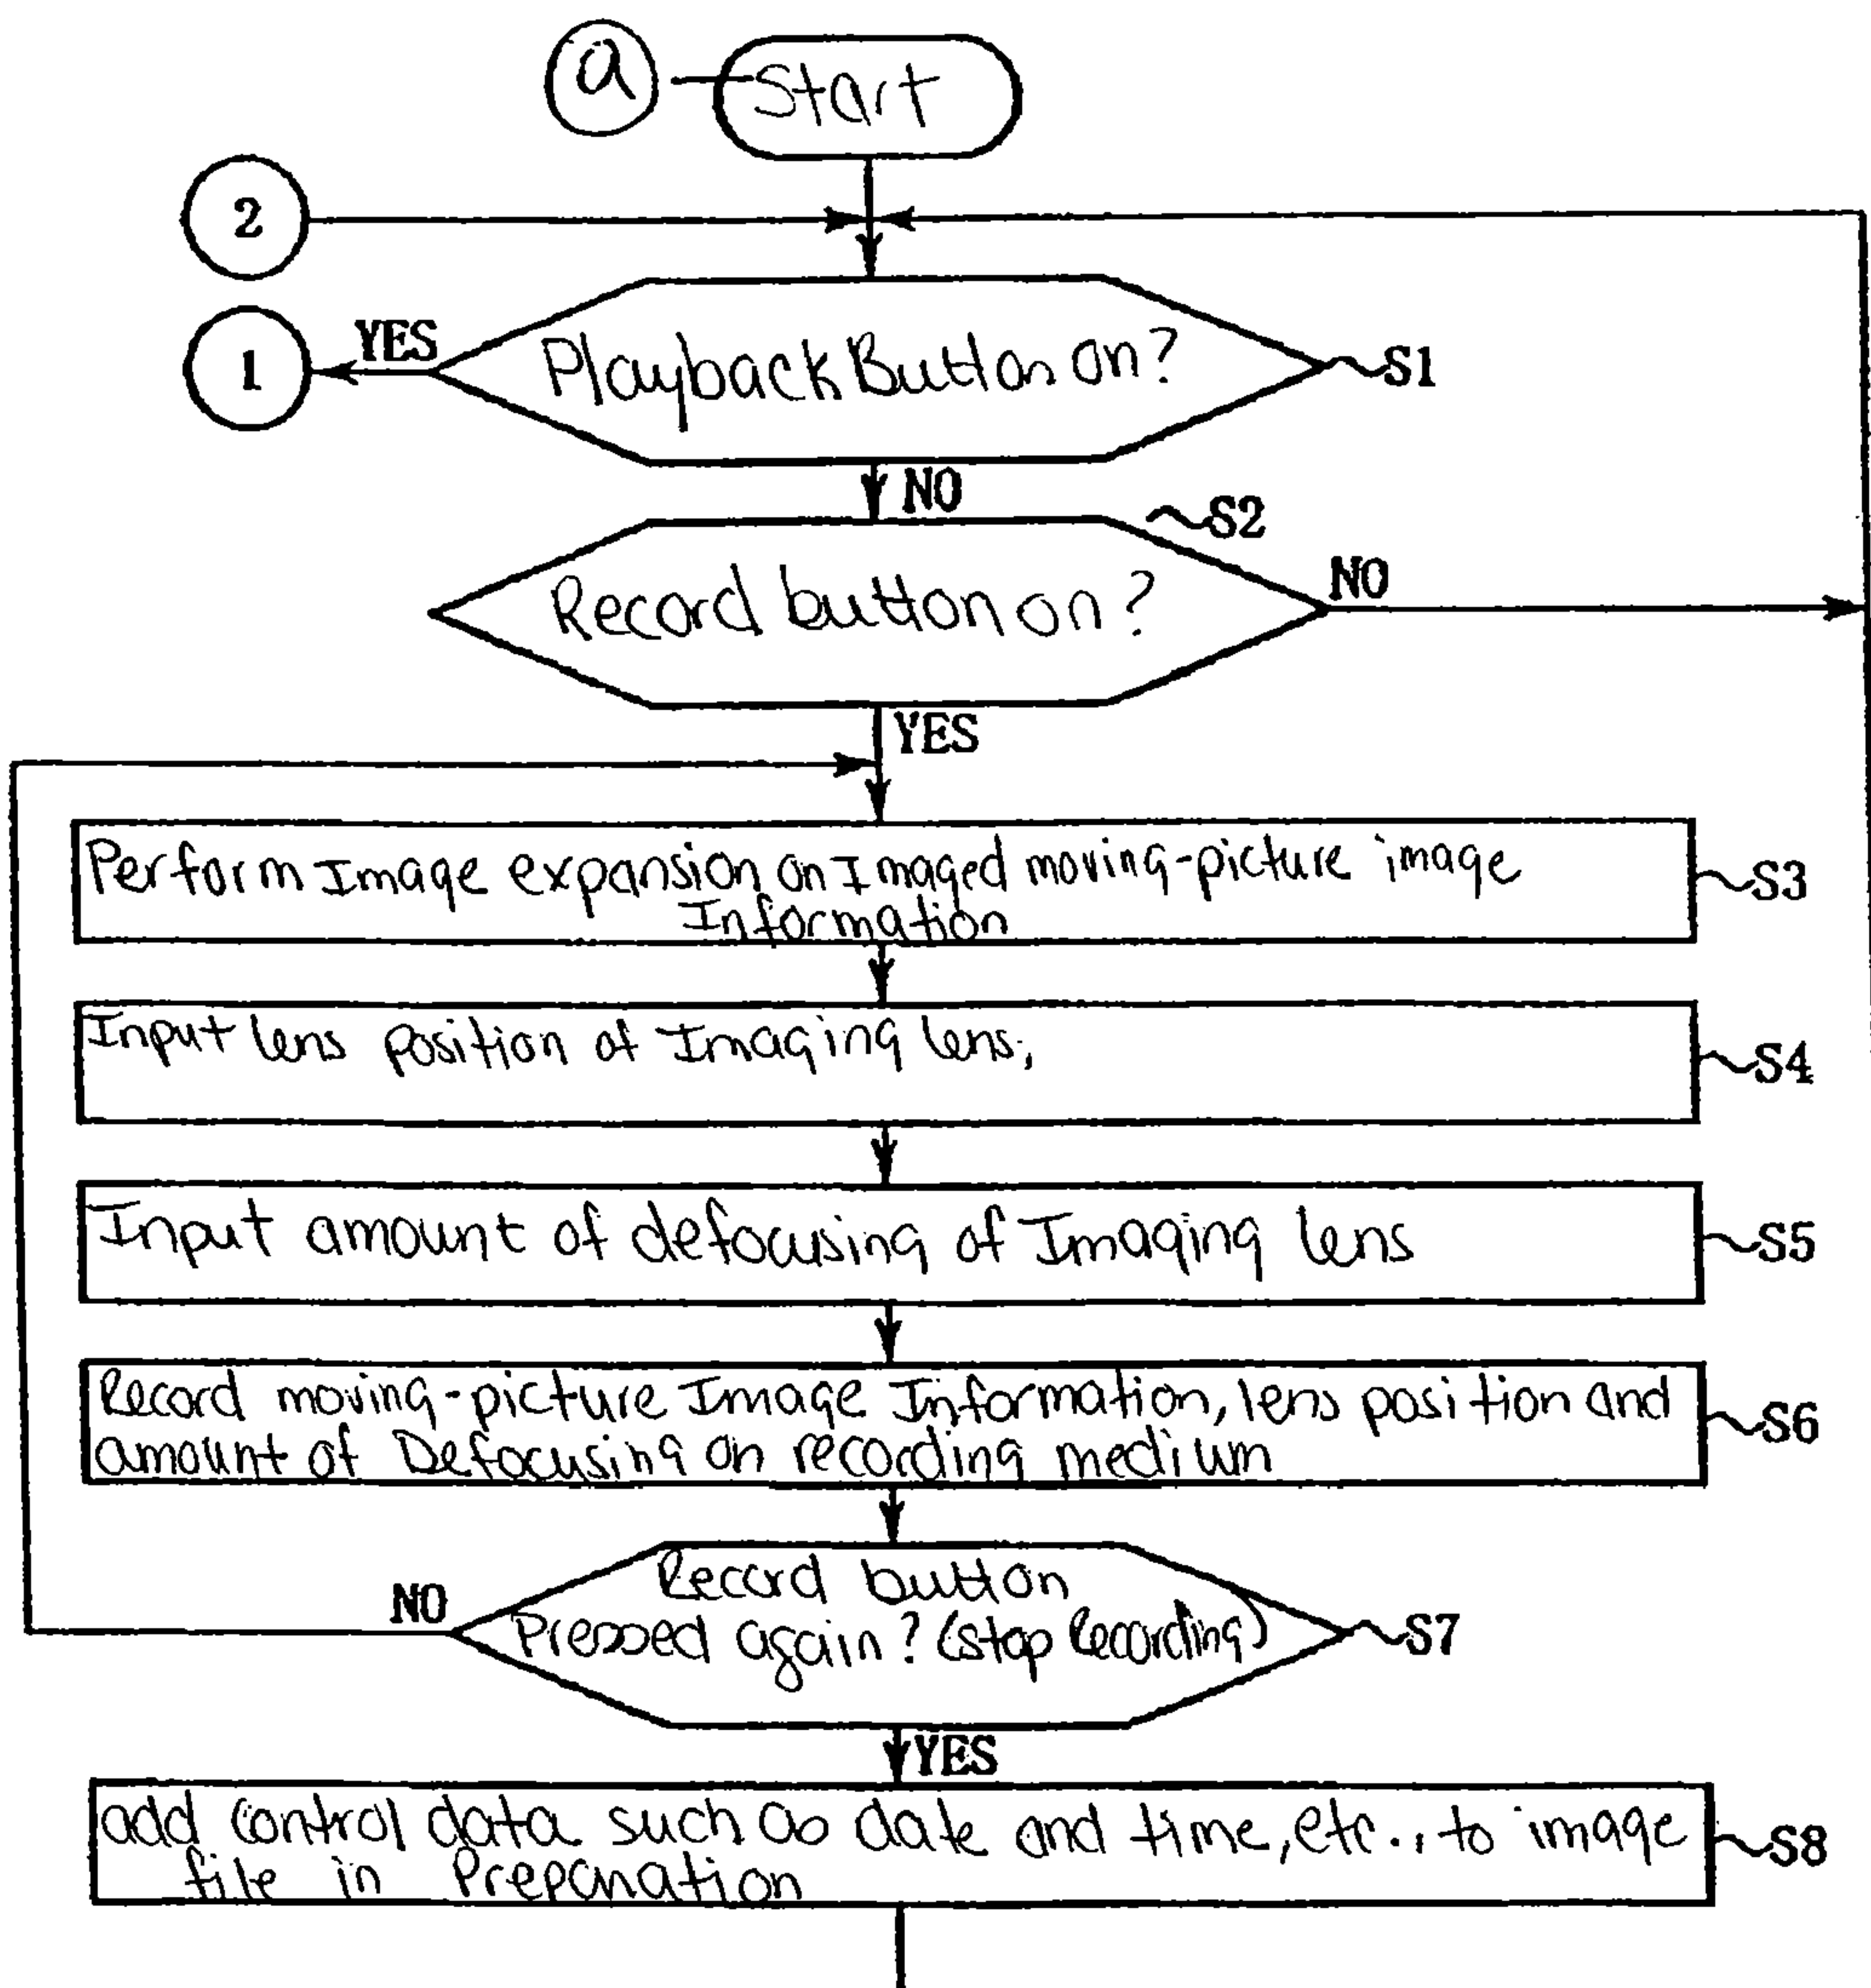 a Start
2
YES
1
Playback Button on?
S1
NO
S2
Record button on?
NO
YES
Perform Image expansion on Imaged moving-picture image
Information
S3
Input lens position of Imaging lens,
S4
Input amount of defocusing of Imaging lens
S5
Record moving-picture Image Information, lens position and
amount of Defocusing on recording medium
S6
NO
Record button
Pressed again? (stop Recording)
S7
YES
add control data such as date and time, etc., to image
file in Preparation
S8